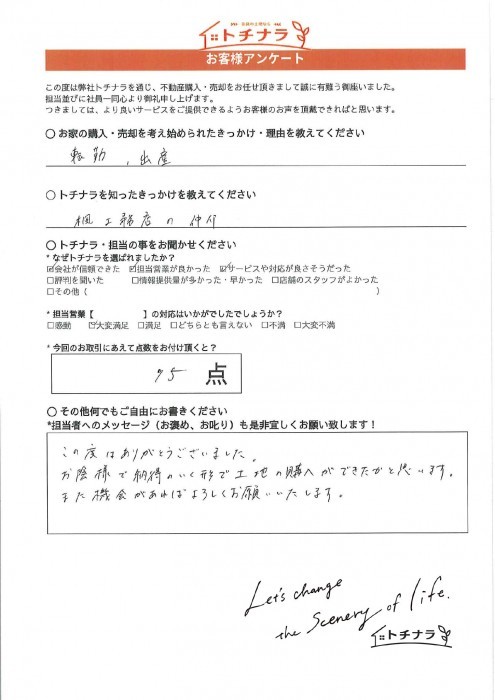 トチナラ
お客様アンケート
この度は弊社トチナラを通じ、不動産購入・売却をお任せ頂きまして誠に有難う御座いました。
担当並びに社員一同心より御礼申し上げます。
つきましては、より良いサービスをご提供できるようお客様のお声を頂戴できればと思います。
○ お家の購入・売却を考え始められたきっかけ・理由を教えてください
転勤、出産
○ トチナラを知ったきっかけを教えてください
楓工務店の仲介
○ トチナラ・担当の事をお聞かせください
* なぜトチナラを選ばれましたか？
☑会社が信頼できた ☑担当営業が良かった ☑サービスや対応が良さそうだった
□評判を聞いた □情報提供量が多かった・早かった □店舗のスタッフがよかった
□その他（ ）
* 担当営業【 】の対応はいかがでしたでしょうか？
□感動 ☑大変満足 □満足 □どちらとも言えない □不満 □大変不満
* 今回のお取引にあえて点数をお付け頂くと？
95 点
○ その他何でもご自由にお書きください
*担当者へのメッセージ（お褒め、お叱り）も是非宜しくお願い致します！
この度はありがとうございました。
お陰様で納得のいく形で土地の購入ができたかと思います。
また機会があればよろしくお願いいたします。
Let's change
the Scenery of life.
トチナラ